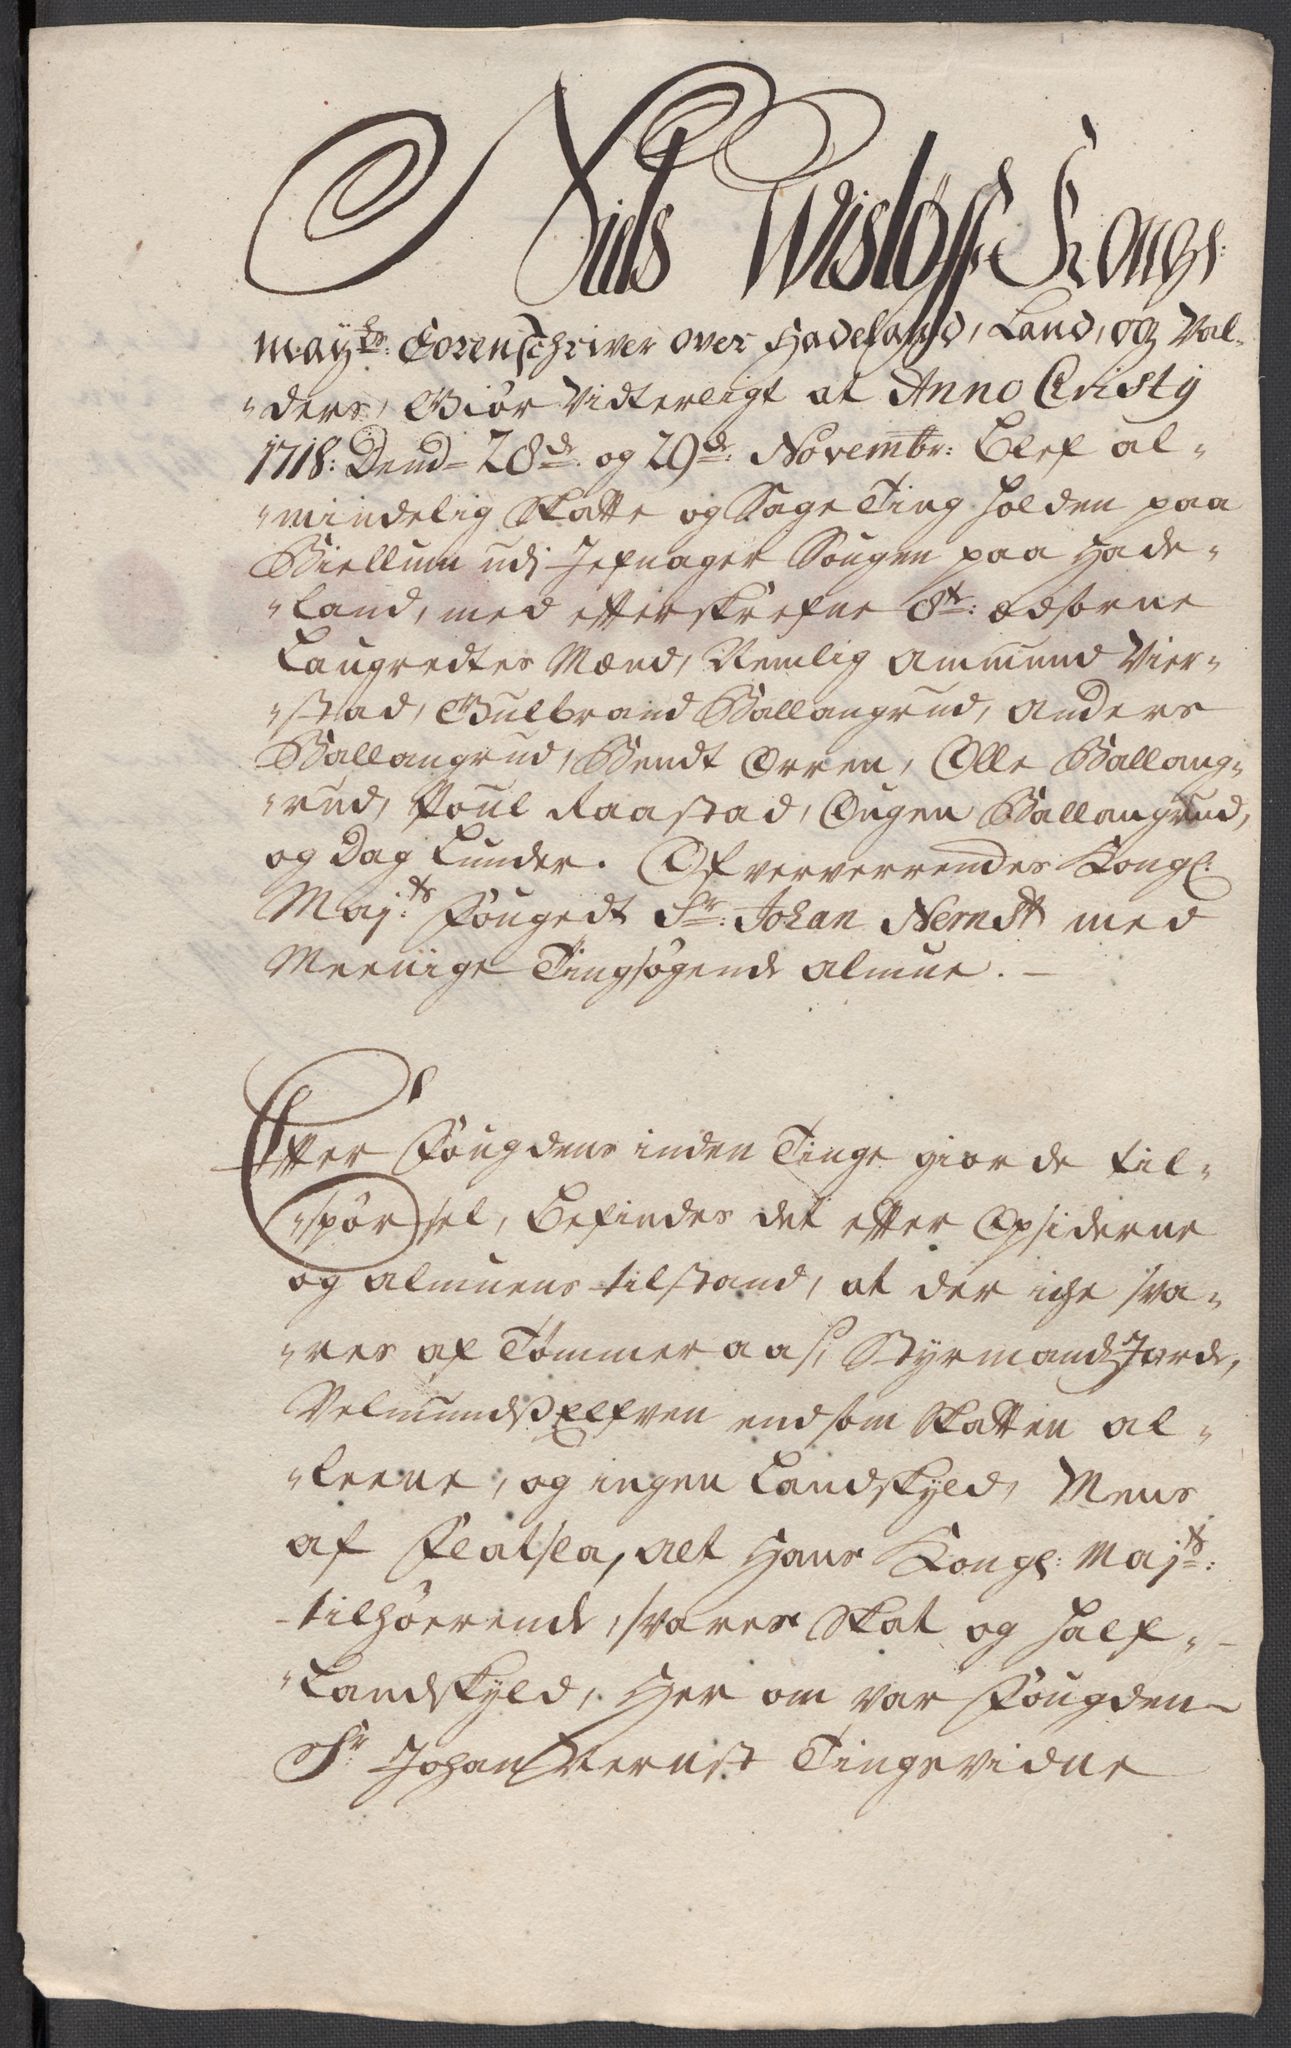 Niels Wisløff Kongl:
maÿ:ts Sorenschriver over Hadeland, Land, og Val-
-ders, Giör Vidterligt at Anno Cristÿ
1718: Dend 28de og 29de: Novembr: blef al-
-mindelig Skatte og Sage Ting holden paa
Biellum udj Jefnager Sougen paa Hade-
-land, med efterskrefne 8te: ædsorne
Laugredtes Mænd, Nemlig Ammund Vier-
-stad, Gulbrand Ballangrud, Anders
Ballangrud, Bendt Orren, Olle Ballang-
-rud, Poul Raastad, Ougen Ballangrud,
og Dag Lunder. Ofververrendes Kongl:
Maj:ts Fougedt Sr: Johan Nernst med
Meenige Tingsøgende almue.
Efter Fougdens inden Tinge giorde til-
-spörsel, befindes det efter Opsiderne
og almuens tilstand, at der iche sva-
-res af Tömmeraas, Styrmands Jorde,
Velmunds Elfven endsom Skatten al-
-leene, og ingen Landskyld, Mens
af Flatsla, alt Hans Kongl: Maj:ts:
tilhøerende, svares Skat og half-
-Landskyld, Her om var Fougden
Sr Johan Nernst Tingsvidne